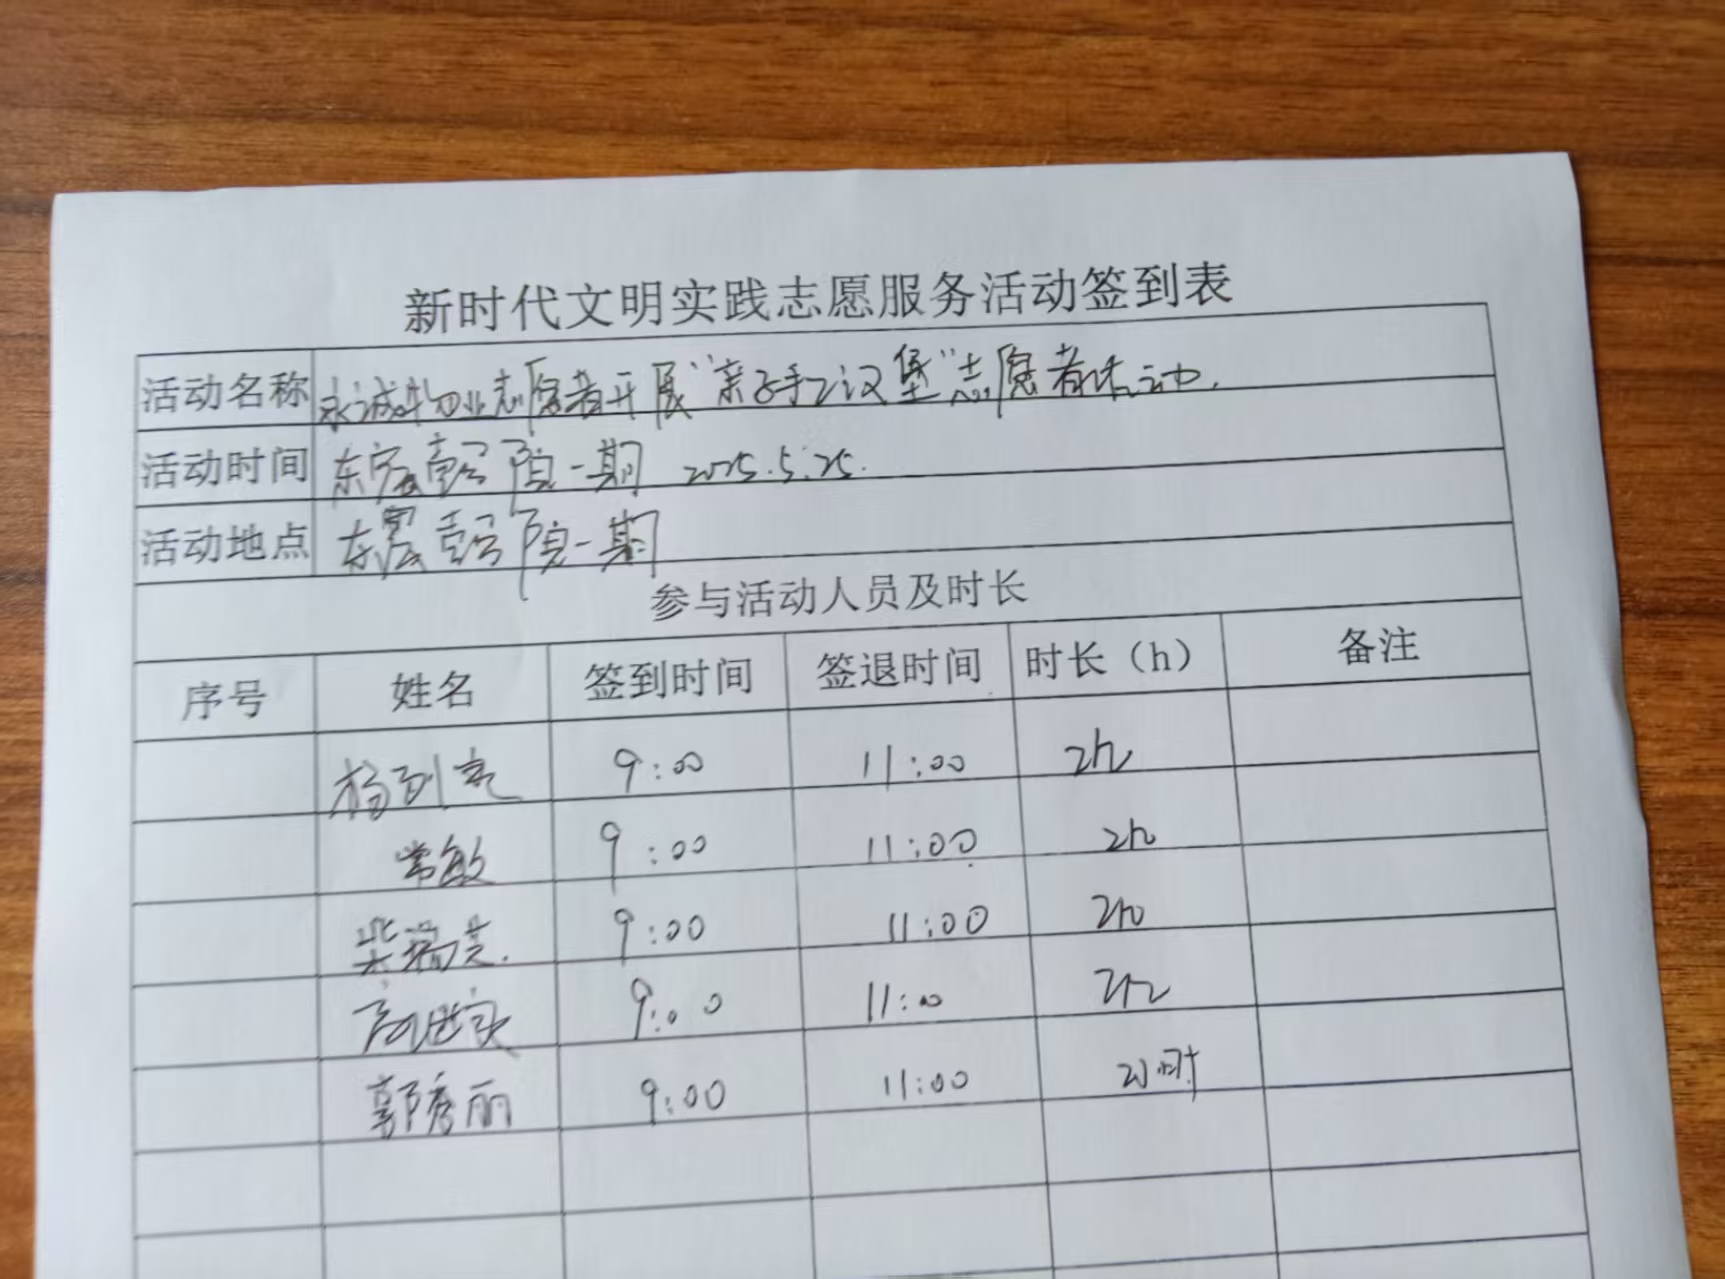 新时代文明实践志愿服务活动签到表
活动名称 永诚物业志愿者开展“亲子手工汉堡”志愿者活动.
活动时间 东宸 院一期 2025.5.25.
活动地点 东 院一期
参与活动人员及时长
序号 姓名 签到时间 签退时间 时长（h） 备注
杨 亮 9:00 11:00 2h
常敏 9:00 11:00 2h
柴瑞芝. 9:00 11:00 2h
高 9:00 11:00 2h
郭秀丽 9:00 11:00 2小时